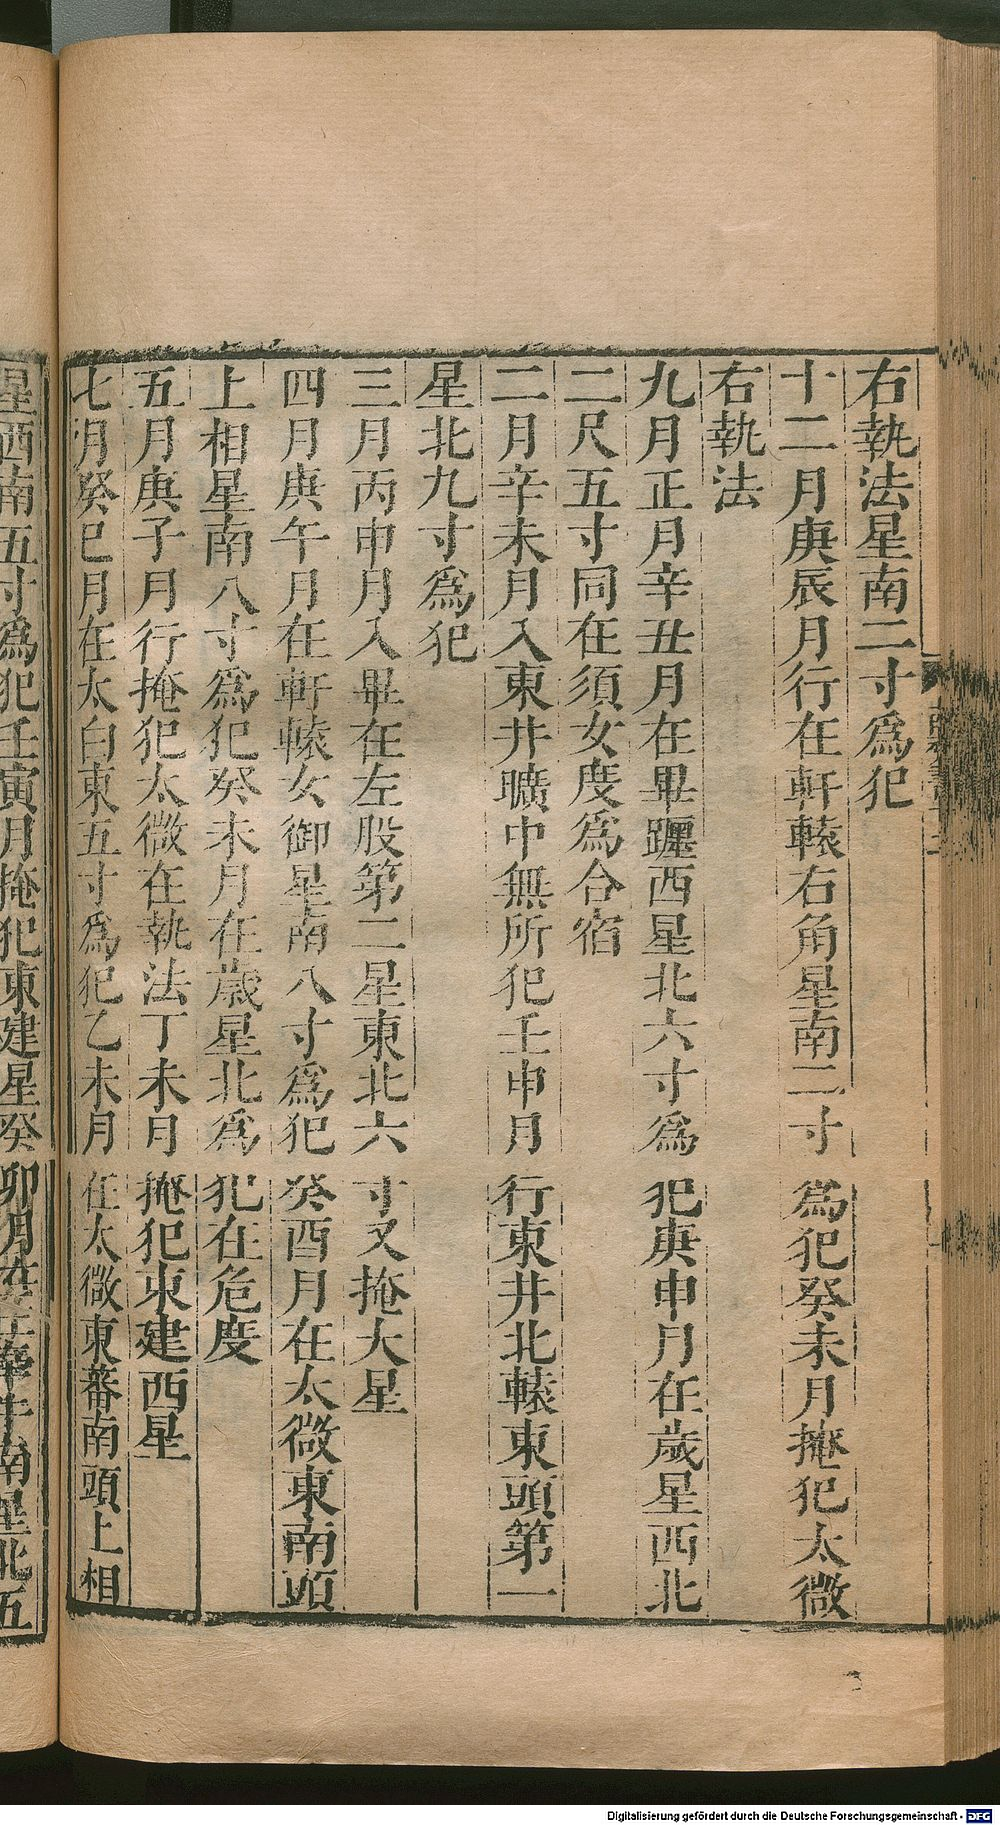 右執法星南二寸爲犯
十二月庚辰月行在軒轅右角星南二寸爲犯癸未月掩犯太微
右執法
九月正月辛丑月在畢躔西星北六寸爲犯庚申月在歲星西北
二尺五寸同在須女度爲合宿
二月辛未月入東井曠中無所犯壬申月行東井北轅東頭第一
星北九寸爲犯
三月丙申月入畢在左股第二星東北六寸又掩大星
四月庚午月在軒轅女御星南八寸爲犯癸酉月在太微東南頭
上相星南八寸爲犯癸未月在歲星北爲犯在危度
五月庚子月行掩犯太微在執法丁未月掩犯東建西星
七月癸巳月在太白東五寸爲犯乙未月在太微東蕃南頭上相
星西南五寸爲犯壬寅月掩犯東建星癸卯月在牽牛南星北五
Digitalisierung gefördert durch die Deutsche Forschungsgemeinschaft - DFG